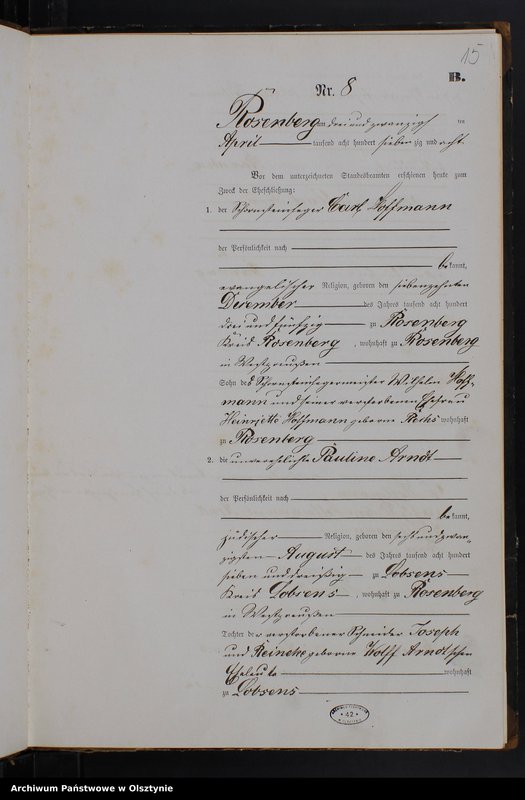 15
B.
Nr. 8
Rosenberg am drei und zwanzigsten
April tausend acht hundert sieben zig und acht.
Vor dem unterzeichneten Standesbeamten erschienen heute zum
Zweck der Eheschließung:
1. der Schornsteinfeger Carl Hoffmann
der Persönlichkeit nach
bekannt,
evangelischer Religion, geboren den siebenzehnten
Dezember des Jahres tausend acht hundert
drei und fünfzig zu Rosenberg
Kreis Rosenberg, wohnhaft zu Rosenberg
in Westpreußen
Sohn des Schornsteinfegermeister Wilhelm Hoff-
mann und seiner verstorbenen Ehefrau
Heinriette Hoffmann geborne wohnhaft
zu Rosenberg
2. die unverehelichte Pauline Arndt
der Persönlichkeit nach
bekannt,
jüdischer Religion, geboren den sechs und zwan-
zigsten August des Jahres tausend acht hundert
sieben und dreißig zu Lobsens
Kreis Lobsens, wohnhaft zu Rosenberg
in Westpreußen
Tochter der verstorbener Schneider Joseph
und geborne Wolff Arndtschen
Eheleute wohnhaft
zu Lobsens
42
Archiwum Państwowe w Olsztynie